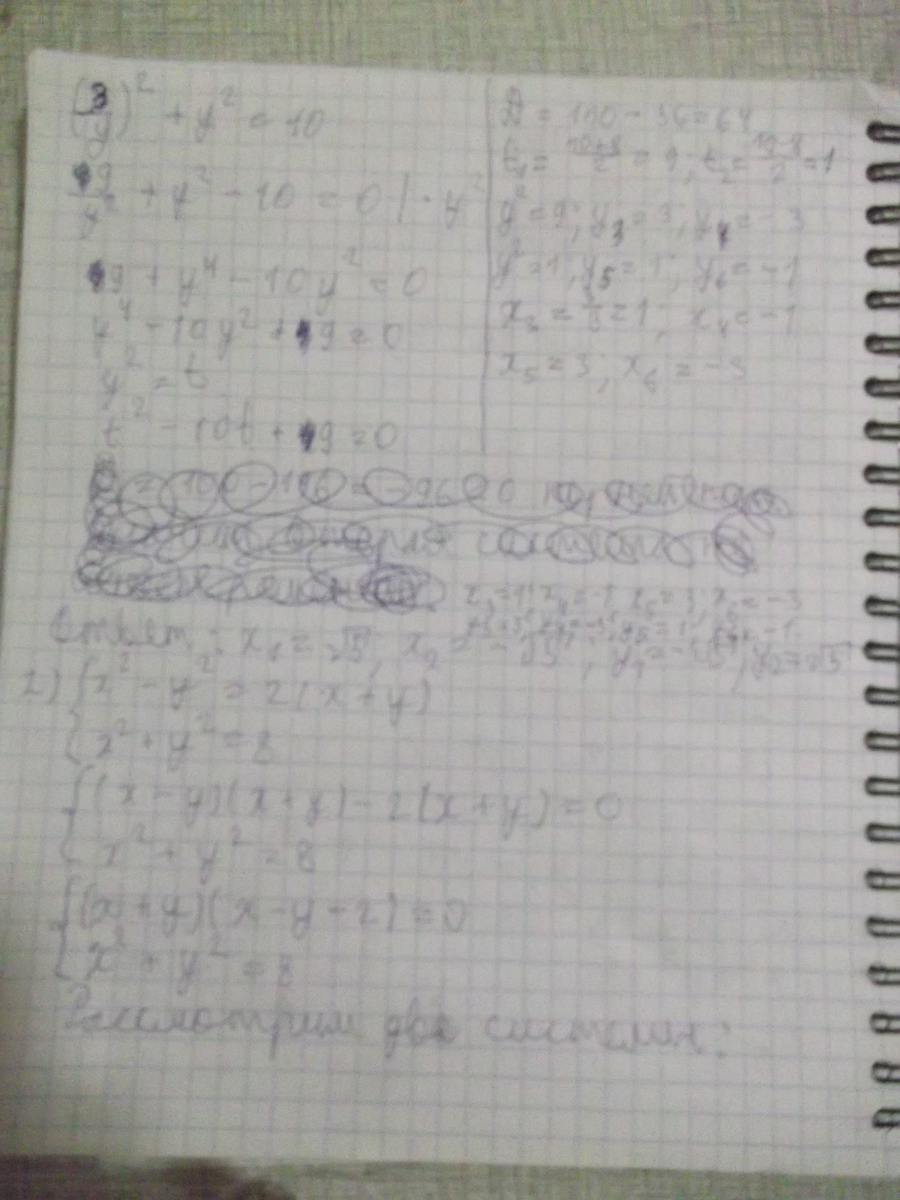 (3/y)² + y² = 10
9/y² + y² - 10 = 0 | · y²
9 + y⁴ - 10y² = 0
y⁴ - 10y² + 9 = 0
y² = t
t² - 10t + 9 = 0
D = 100 - 36 = 64
t₁ = (10+8)/2 = 9, t₂ = (10-8)/2 = 1
y² = 9; y₃ = 3; y₄ = -3
y² = 1, y₅ = 1; y₆ = -1
x₃ = 3/3 = 1; x₄ = -1
x₅ = 3; x₆ = -3
x₃ = 1; x₄ = -1, x₅ = 3; x₆ = -3
Ответ: x₁ =
2) { x² - y² = 2(x + y)
x² + y² = 8
{ (x - y)(x + y) - 2(x + y) = 0
x² + y² = 8
{ (x + y)(x - y - 2) = 0
x² + y² = 8
Рассмотрим две системы: